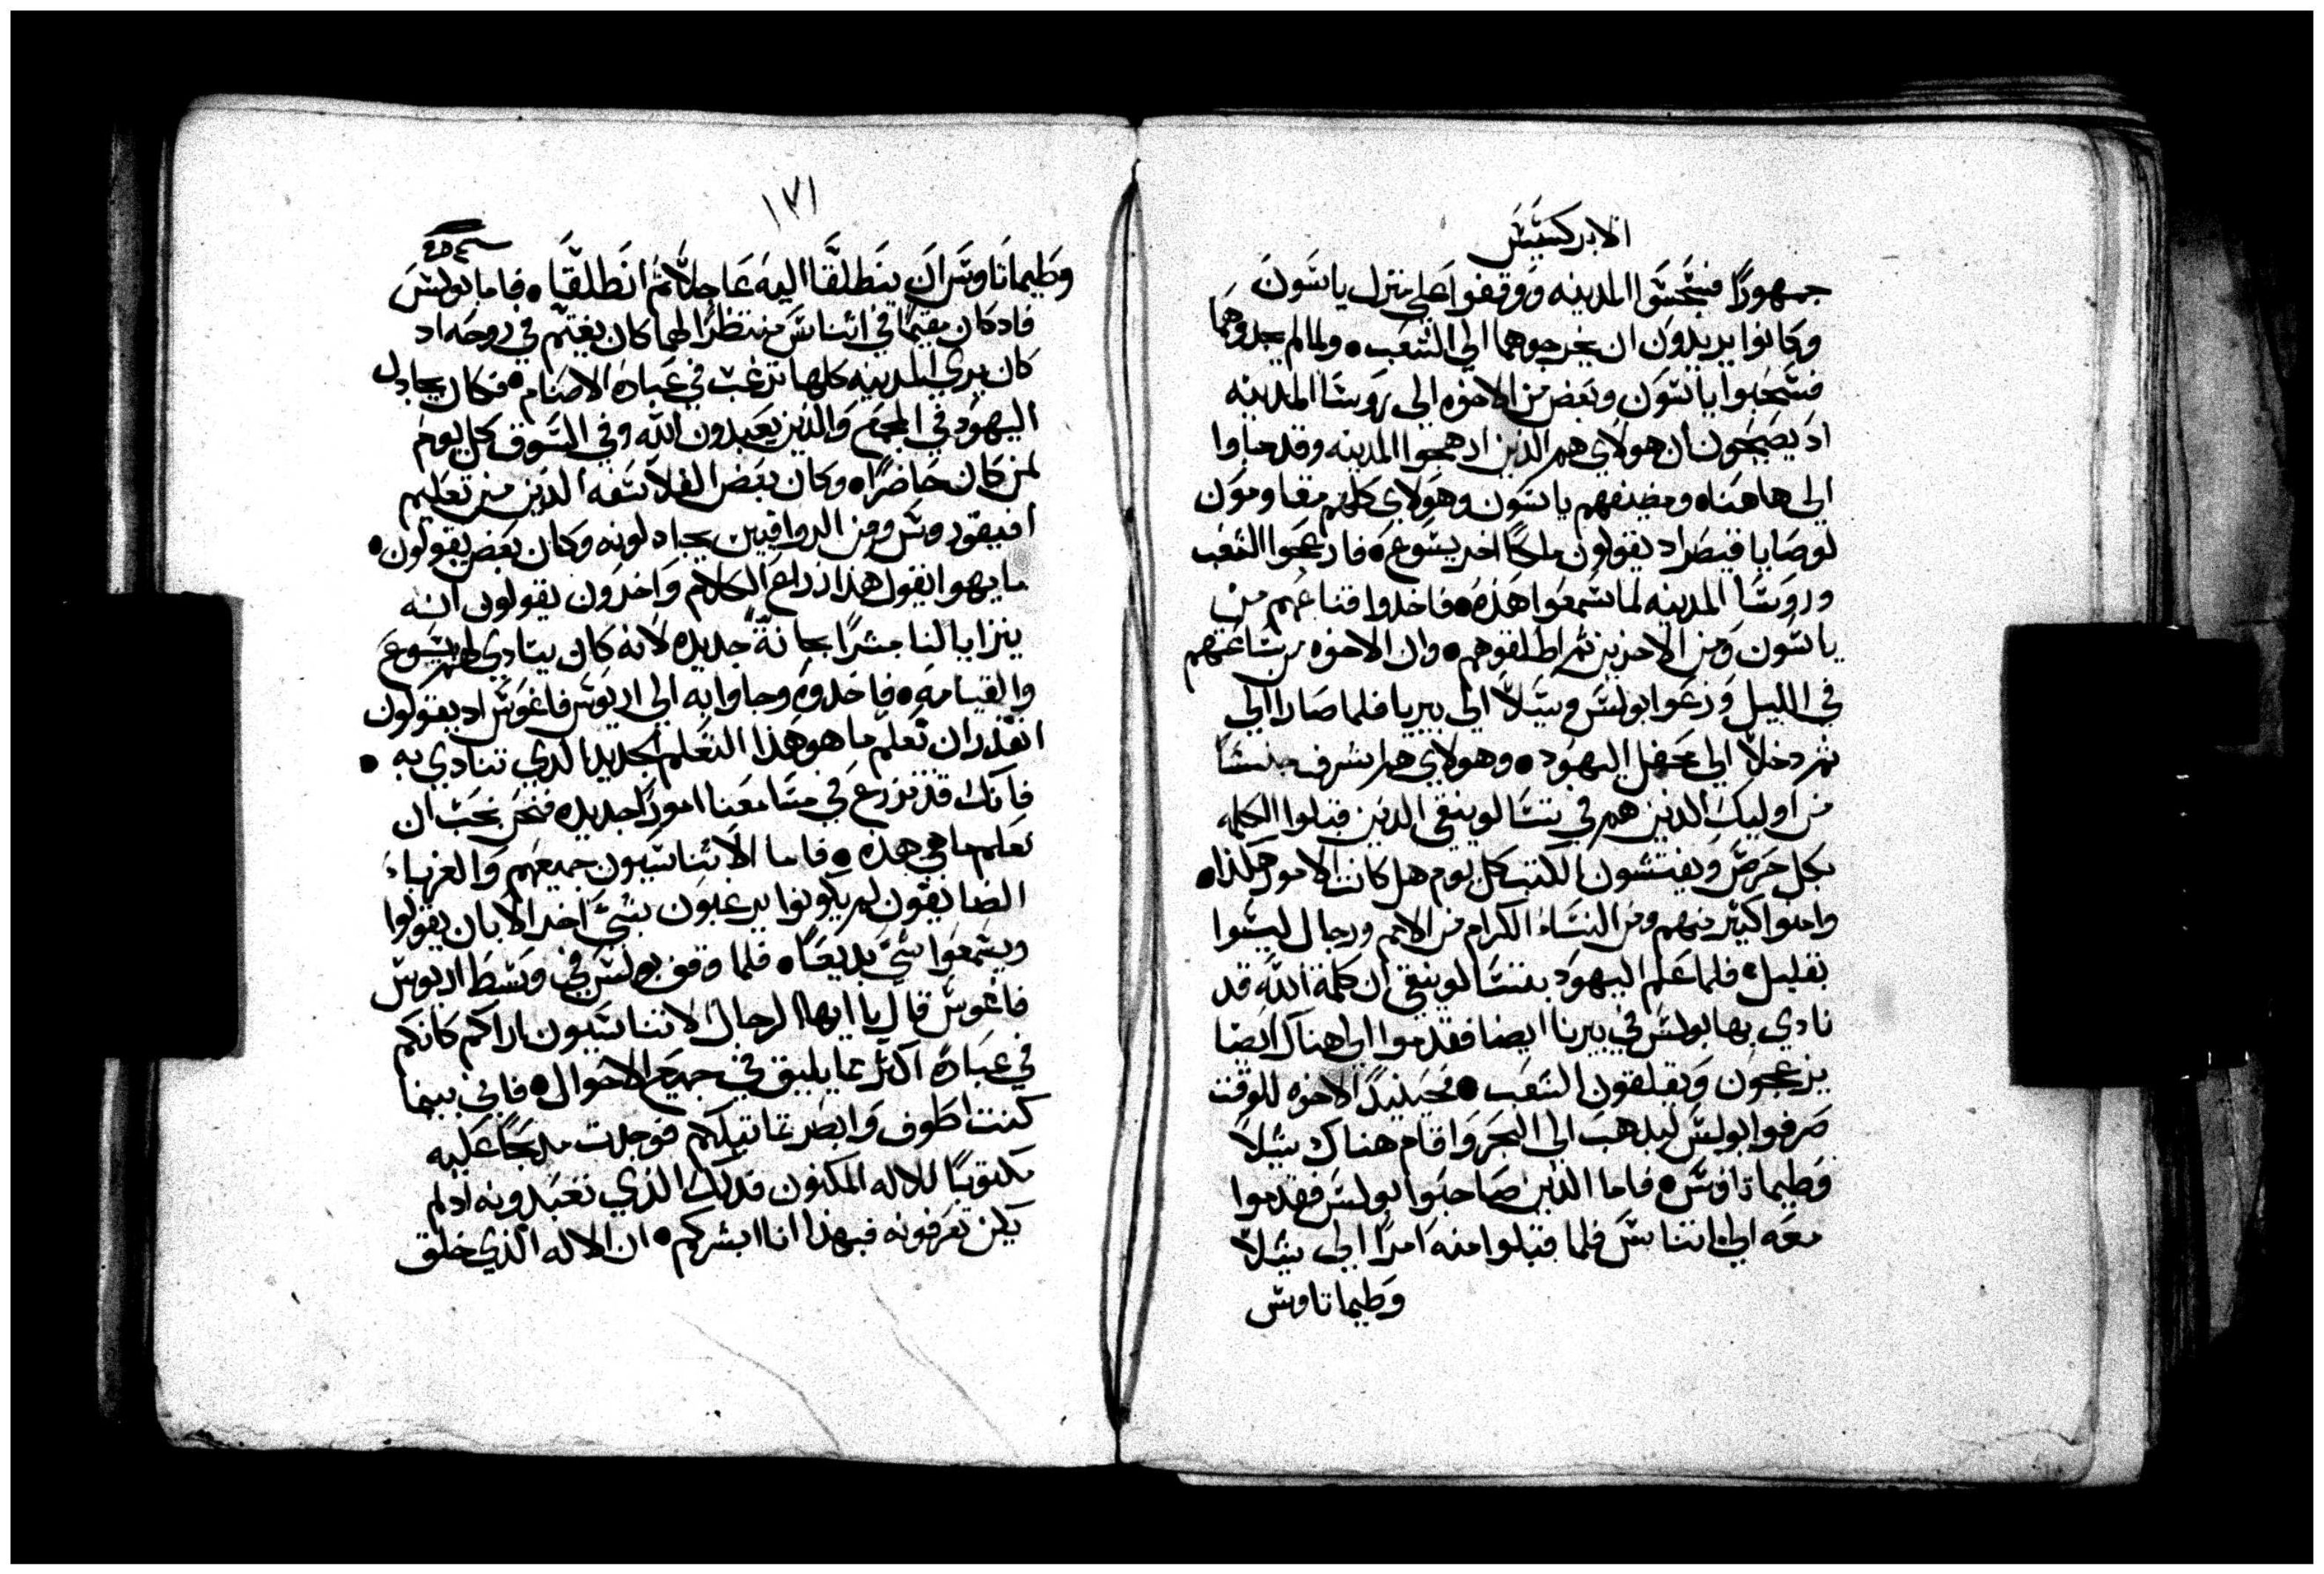 الابركسيس
جمهورًا فسجّسوا المدينه ووقفوا علي منزل ياسون
وكانوا يريدون ان يخرجوهما الي الشعب • ولما لم يجدوهما
فسحبوا ياسون وبعض من الاخوه الي روسا المدينه
اد يصيحون ان هولاي هم الذين ارهجوا المدينه وقد جاوا
الي هاهناه ومضيفهم ياسون وهولاي كلهم مقاومون
لوصايا قيصر اد يقولون ملكًا اخر يسوع • فارعجوا الشعب
وروسا المدينه لما سمعوا هذه • فاخدوا قناعهم من
ياسون ومن الاخرين ثم اطلقوهم • وان الاخوه من ساعتهم
في الليل ودعوا بولس وسيلا الي بيريا فلما صارا الي
ثم دخلا الي محفل اليهود • وهولاي هم اشرف جنسًا
من اوليك الذين هم في تسالونيقي الدين قبلوا الكلمه
بكل حرص ويفتشون الكتب كل يوم هل كانت الامور هكذا •
وامنوا كثير منهم ومن النساء الكرام من الامم ورجال ليسوا
بقليل • فلما علم اليهود بتسالونيقي ان كلمة الله قد
نادي بها بولس في بيريا ايضا فقدموا الي هناك ايضا
يزعجون ويقلقون الشعب • فحينيدٍ الاخوه للوقت
صرفوا بولس ليدهب الي البحر واقام هناك سيلا
وطيماتاوس • فاما الذين صاحبوا بولس فقدموا
معه الي اتناس فلما قبلوا منه امرًا الي سيلا
وطيماتاوس
١٧١
وطيماتاوس ان ينطلقا اليه عاجلا ثم انطلقا • فاما بولس
فاد كان مقيمًا في اتناس منتظرًا لهما كان يغتم في روحه اد
كان يري المدينه كلها ترغب في عبادة الاصنام • فكان يجادل
اليهود في المجمع والذين يعبدون الله وفي السوق كل يوم
لمن كان حاضرًا • وكان بعض الفلاسفه الدين من تعليم
افيقوروس ومن الرواقيين يجادلونه وكان بعض يقولون •
ما يهوا يقول هذا زراع الكلام واخرون يقولون انه
يتزايا لنا مبشرًا بجانةً جديده لانه كان ينادي لهم بيسوع
والقيامه • فاخدوه وجاوا به الي اريوس فاغوس اد يقولون
انقدر ان نعلم ما هو هذا التعلم الجديد الدي تنادي به •
فانك قد تزرع في مسامعنا امورًا جديده فنحن نحب ان
نعلم ما هي هذه • فاما الاثناسيون جميعهم والغرباء
الضايقون لم يكونوا يرغبون بشي اخر الا بان يقولوا
ويسمعوا شي بديعًا • فلما وقف بولس في وسط اريوس
فاغوس قال يا ايها الرجال الاتناسيون اراكم كانكم
في عبادة اكثر مما يليق في جميع الاحوال • فاني بينما
كنت اطوف وابصر تماتيلكم فوجدت مدبحًا عليه
مكتوبًا للاله المكنون فدلك الذي تعبدونه اد لم
يكن تعرفونه فبهذا انا ابشركم • ان الاله الذي خلق